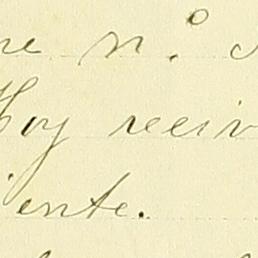 re n.º
Hoy reciv
iente.